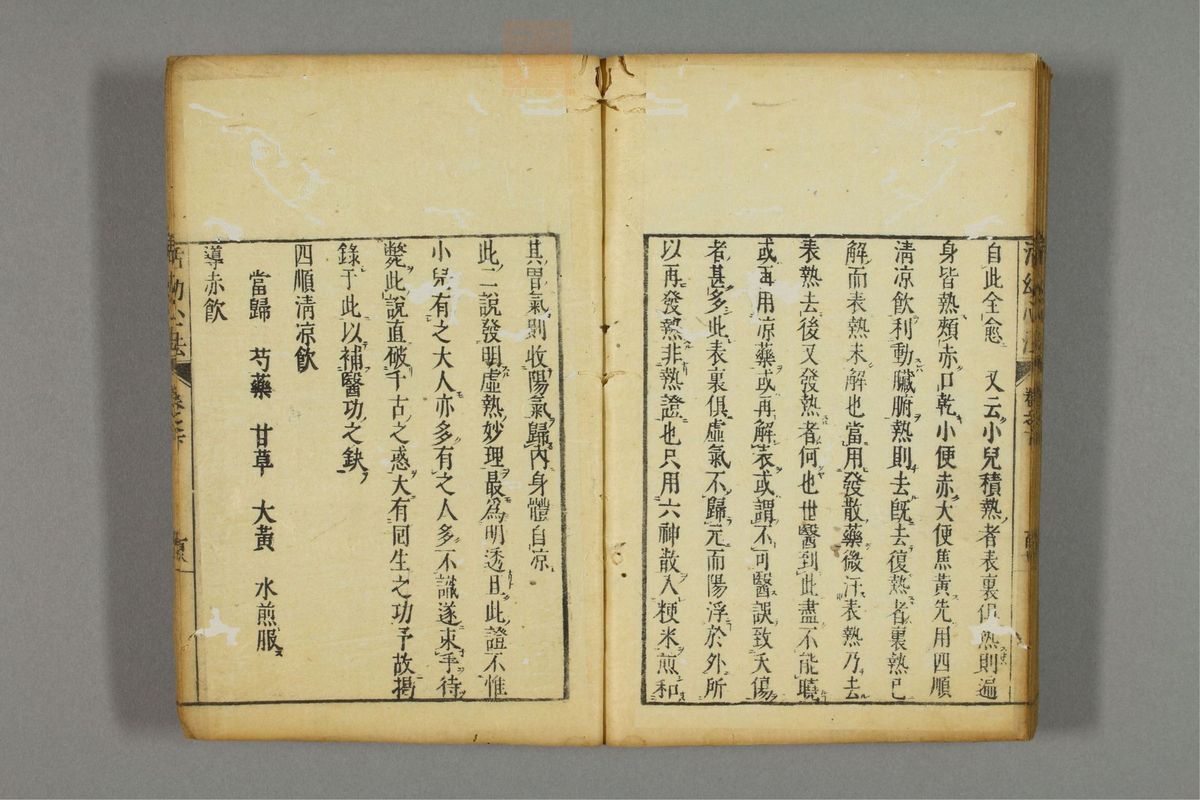 自此全愈　又云小兒積熱者表裏俱熱則遍
身皆熱頰赤口乾小便赤大便焦黃先用四順
清凉飲利動臟腑熱則去旣去復熱者裏熱已
解而表熱未解也當用發散藥微汗表熱乃去
表熱去後又發熱者何也世醫到此盡不能曉
或再用凉藥或再解表或謂不可醫誤致夭傷
者甚多此表裏俱虛氣不歸元而陽浮於外所
以再發熱非熱證也只用六神散入粳米煎和
其胃氣則收陽氣歸內身體自凉
此二說發明虛熱妙理最爲明透且此證不惟
小兒有之大人亦多有之人多不識遂束手待
斃此說直破千古之惑大有囘生之功予故揭
錄于此以補醫功之缺
四順清凉飲
當歸　芍藥　甘草　大黃　水煎服
導赤飲
活幼心法　卷之六